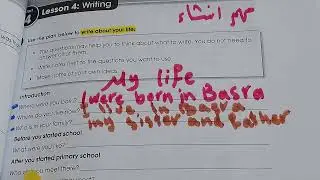 4 Lesson 4: Writing
مهم انشاء
Use the plan below to write about your life.
The questions may help you to think about what to write. You do not need to
the questions you want to use.
Make notes of your own ideas.
My life
Introduction
I were born in Basra
Where were you born?
Where do you live now?
in Basra
Who is in your family?
my sister and father
Before you started school
What were you like?
After you started primary school
Who did you meet there?